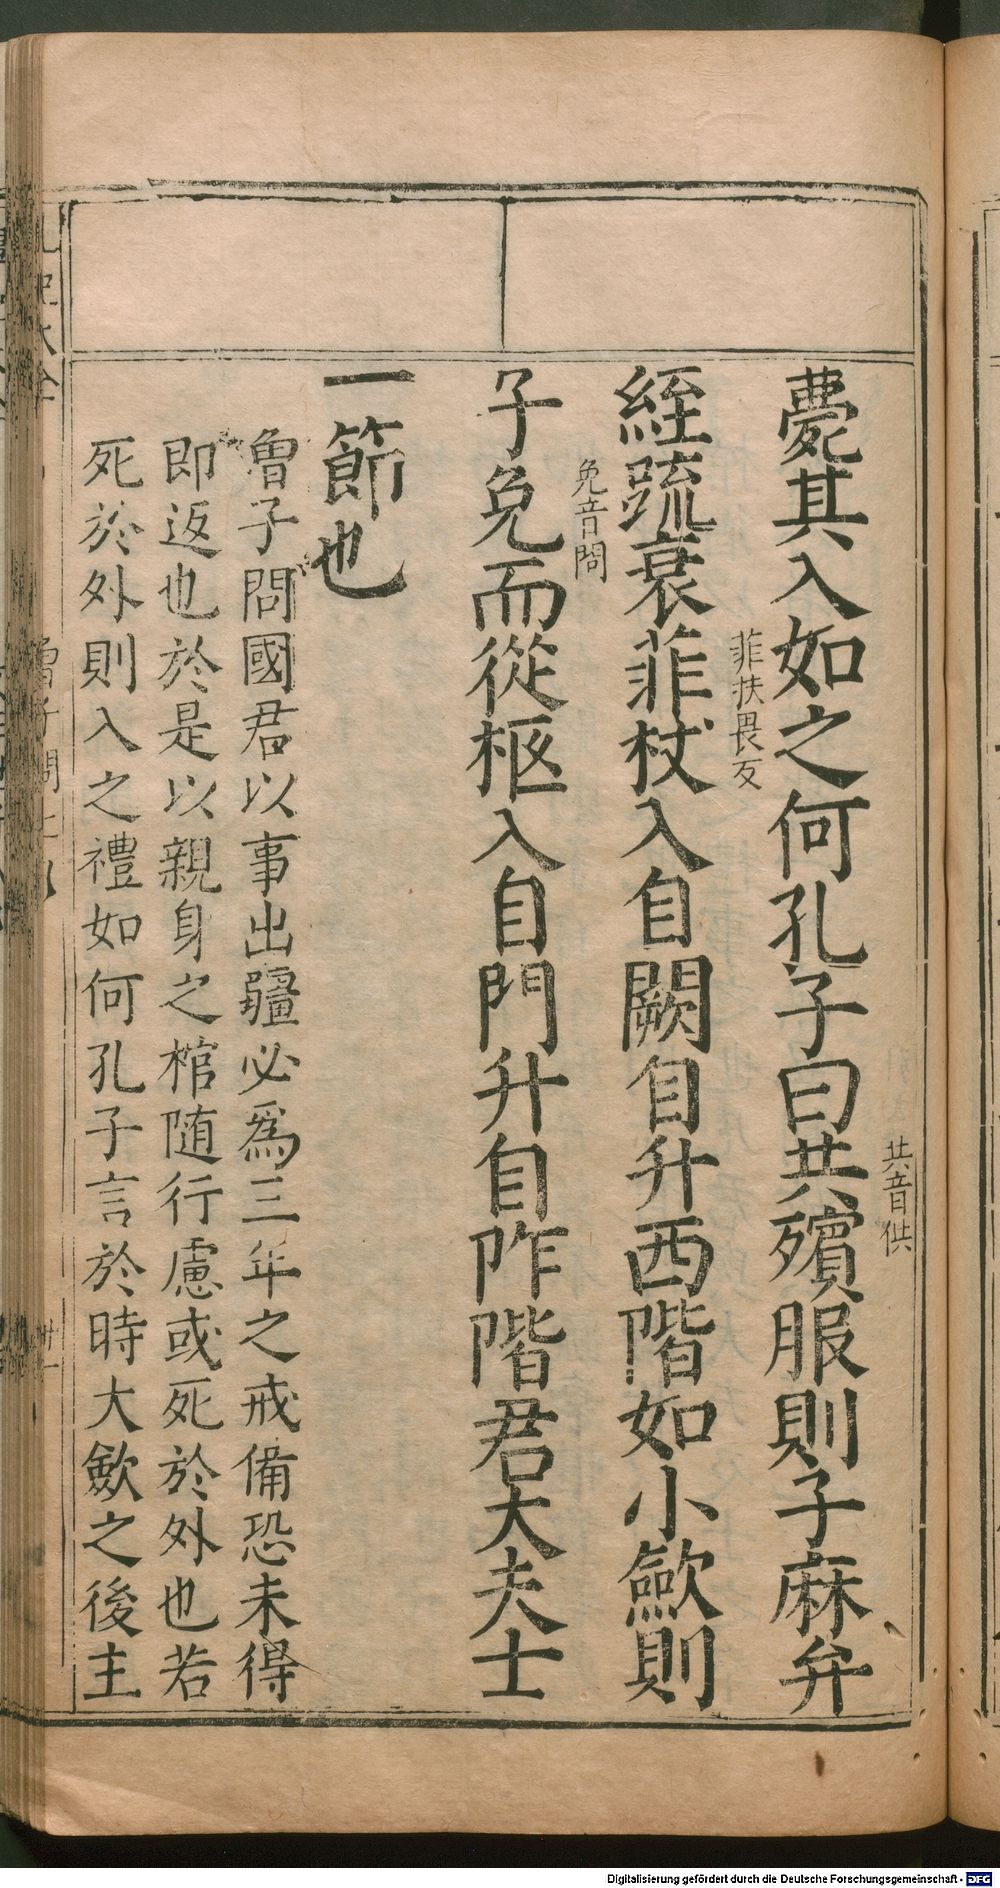 共音供
薨其入如之何孔子曰共殯服則子麻弁
菲扶畏反
絰䟽衰菲杖入自闕自升西階如小歛則
免音問
子免而從柩入自門升自阼階君大夫士
一節也
曾子問國君以事出疆必為三年之戒備恐未得
即返也於是以親身之棺随行慮或死於外也若
死於外則入之禮如何孔子言於時大歛之後主
曾子問
卅一
Digitalisierung gefördert durch die Deutsche Forschungsgemeinschaft - DFG